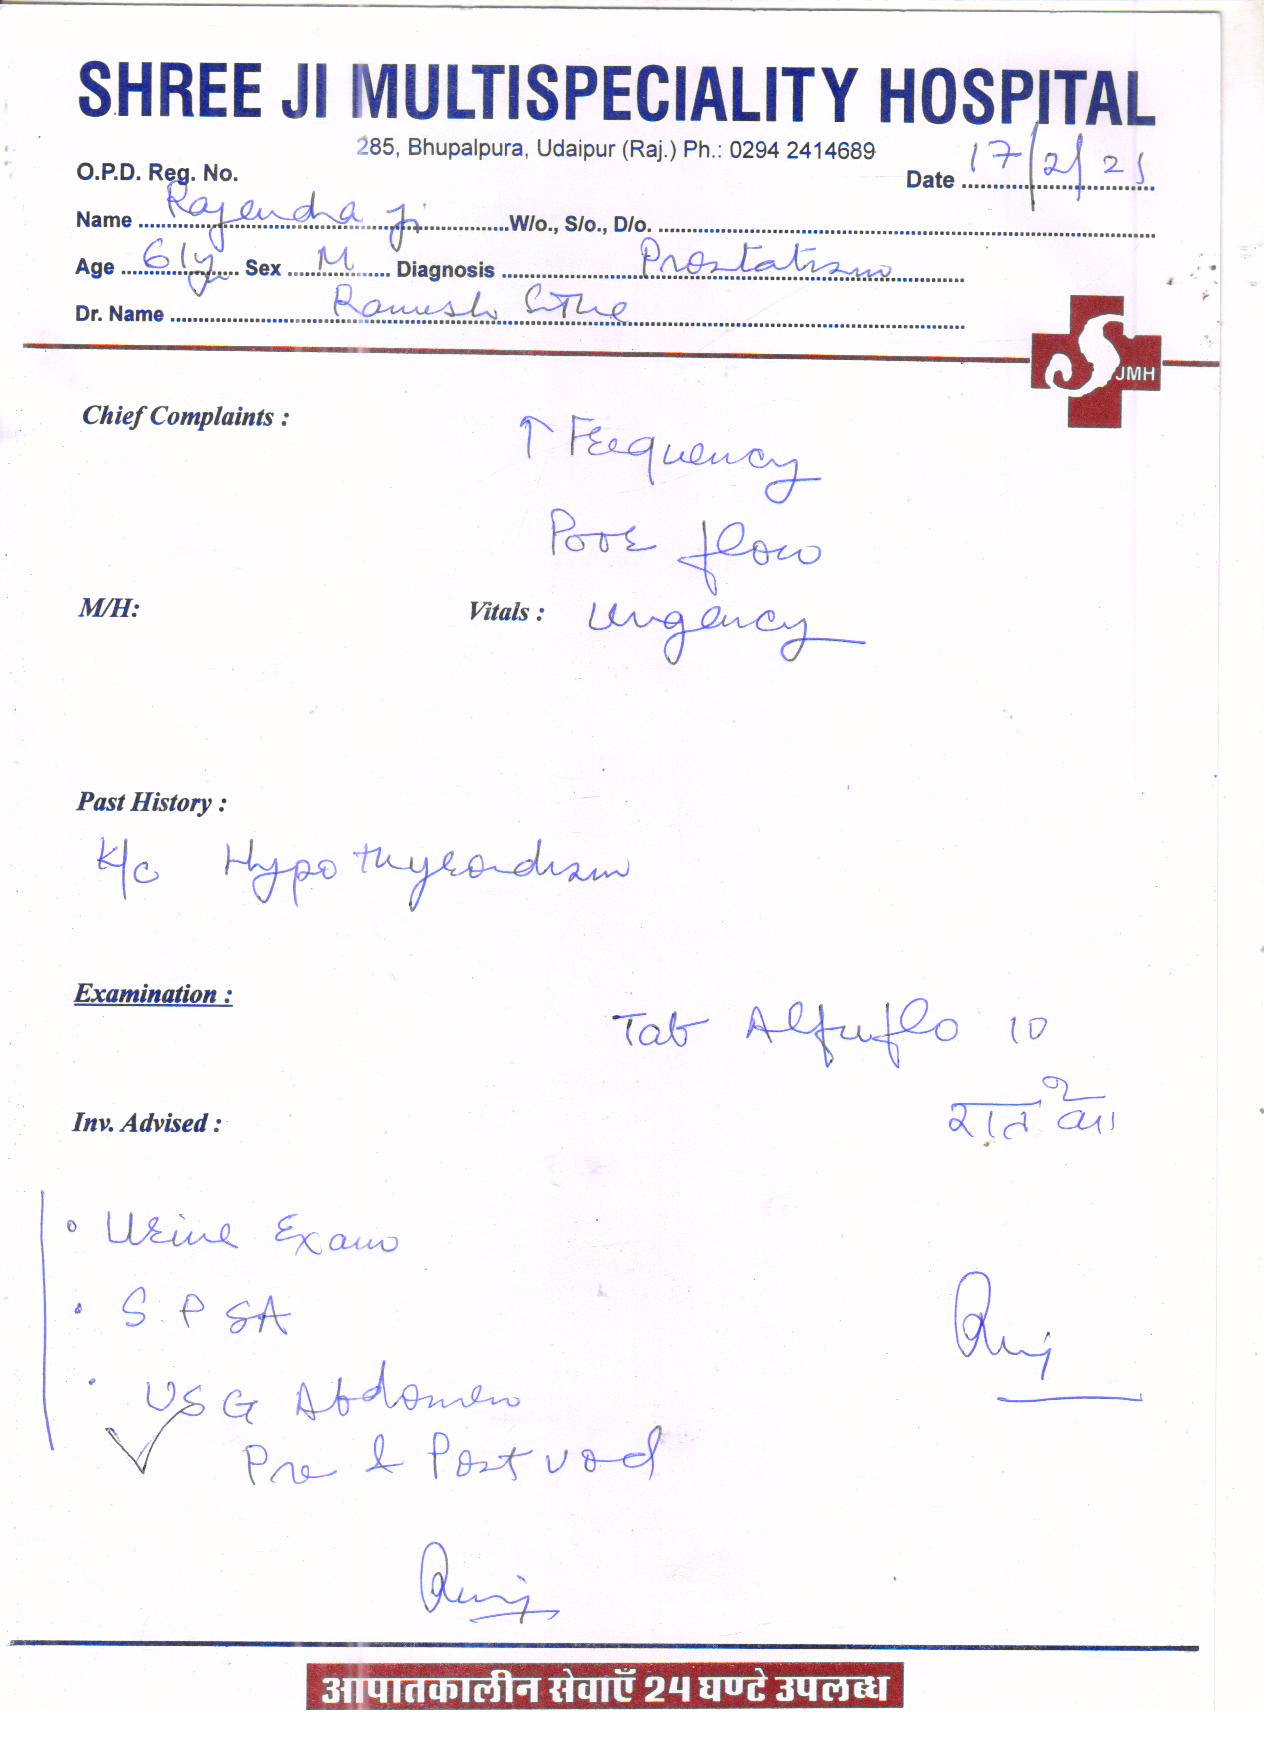 SHREE JI MULTISPECIALITY HOSPITAL
285, Bhupalpura, Udaipur (Raj.) Ph.: 0294 2414689
O.P.D. Reg. No. Date 17/2/21
Name Rajendra Ji W/o., S/o., D/o.
Age 61y Sex M Diagnosis Prostatism
Dr. Name Ramesh
JMH
Chief Complaints : ↑ Frequency
Poor flow
M/H: Vitals : Urgency
Past History :
K/c Hypothyroidism
Examination :
Tab Alfuflo 10
रात को
Inv. Advised :
• Urine Exam
• S. PSA
• USG Abdomen
Pre & Post void
आपातकालीन सेवाएँ 24 घण्टे उपलब्ध